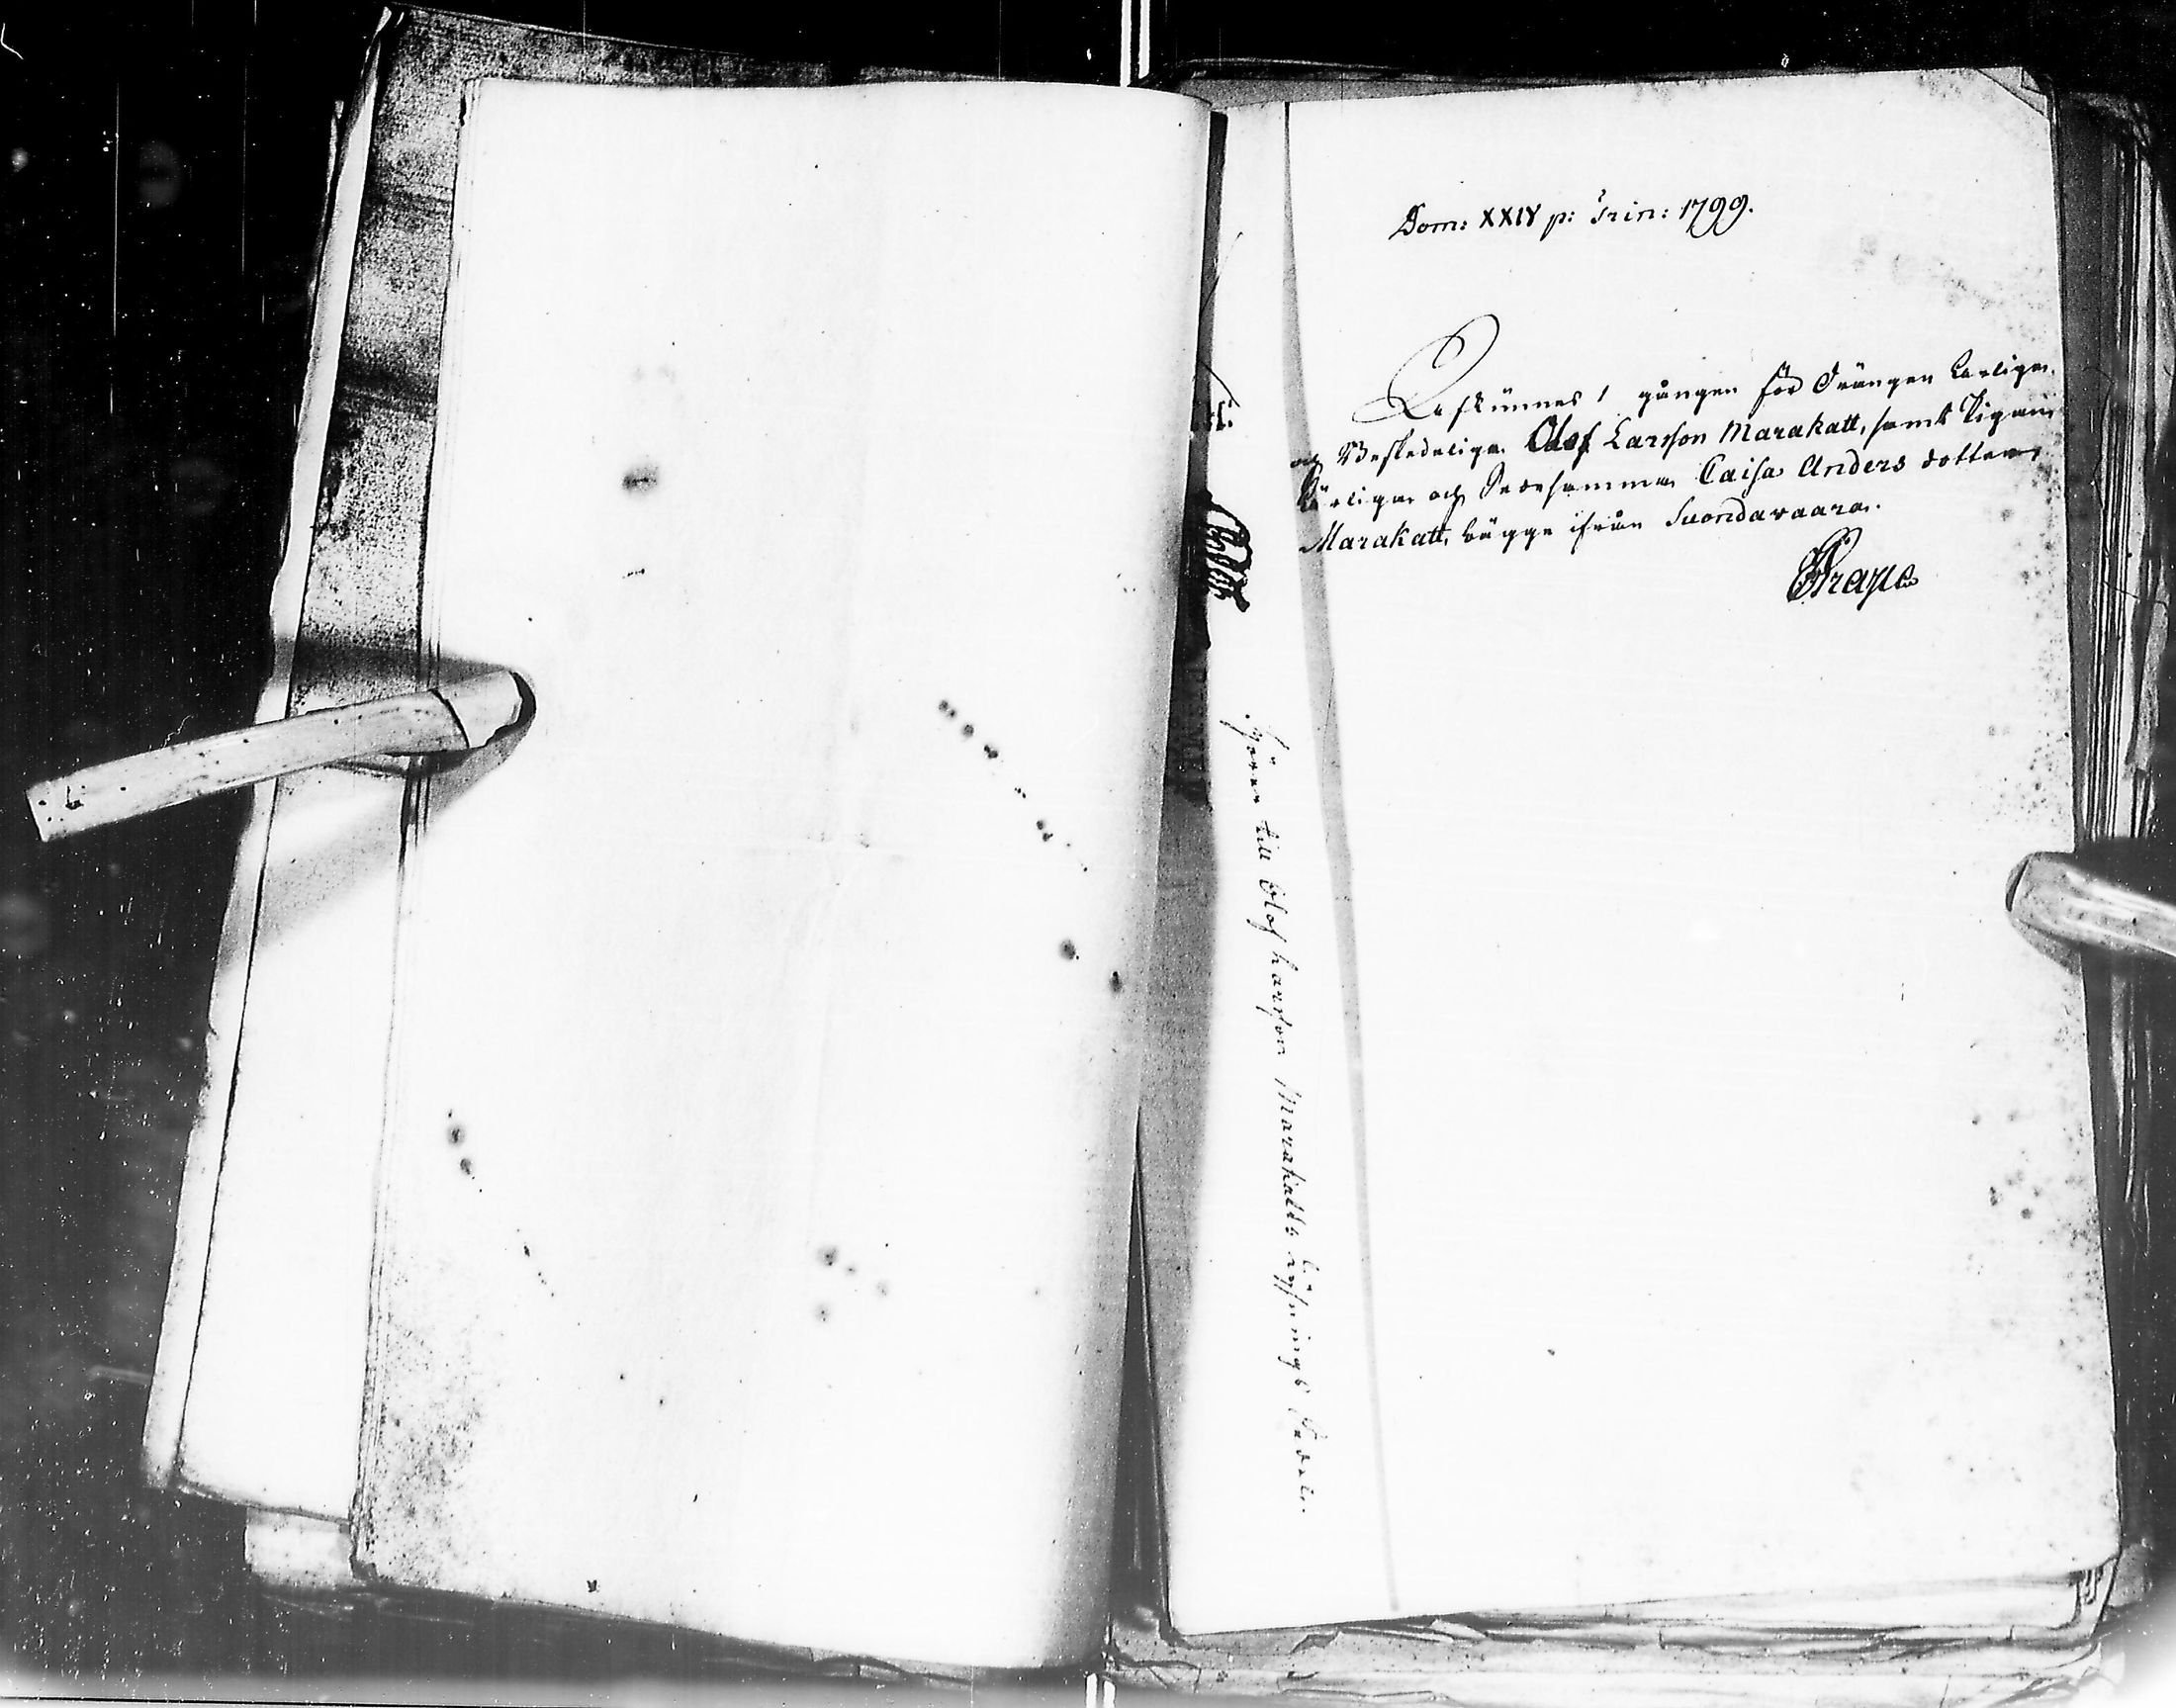 Dom: XXIV p: Trin: 1799.
Afkunnes 1 gången för Drängen Ärlige
och Beskedelige Olof Larsson Marakatt, samt Pigan
Ärliga och Dygdesamma Caisa Anders dotter
Marakatt, bägge ifrån Suondavaara.
hörer till Olof Larsson Marakatts Lyssnings Sedel.